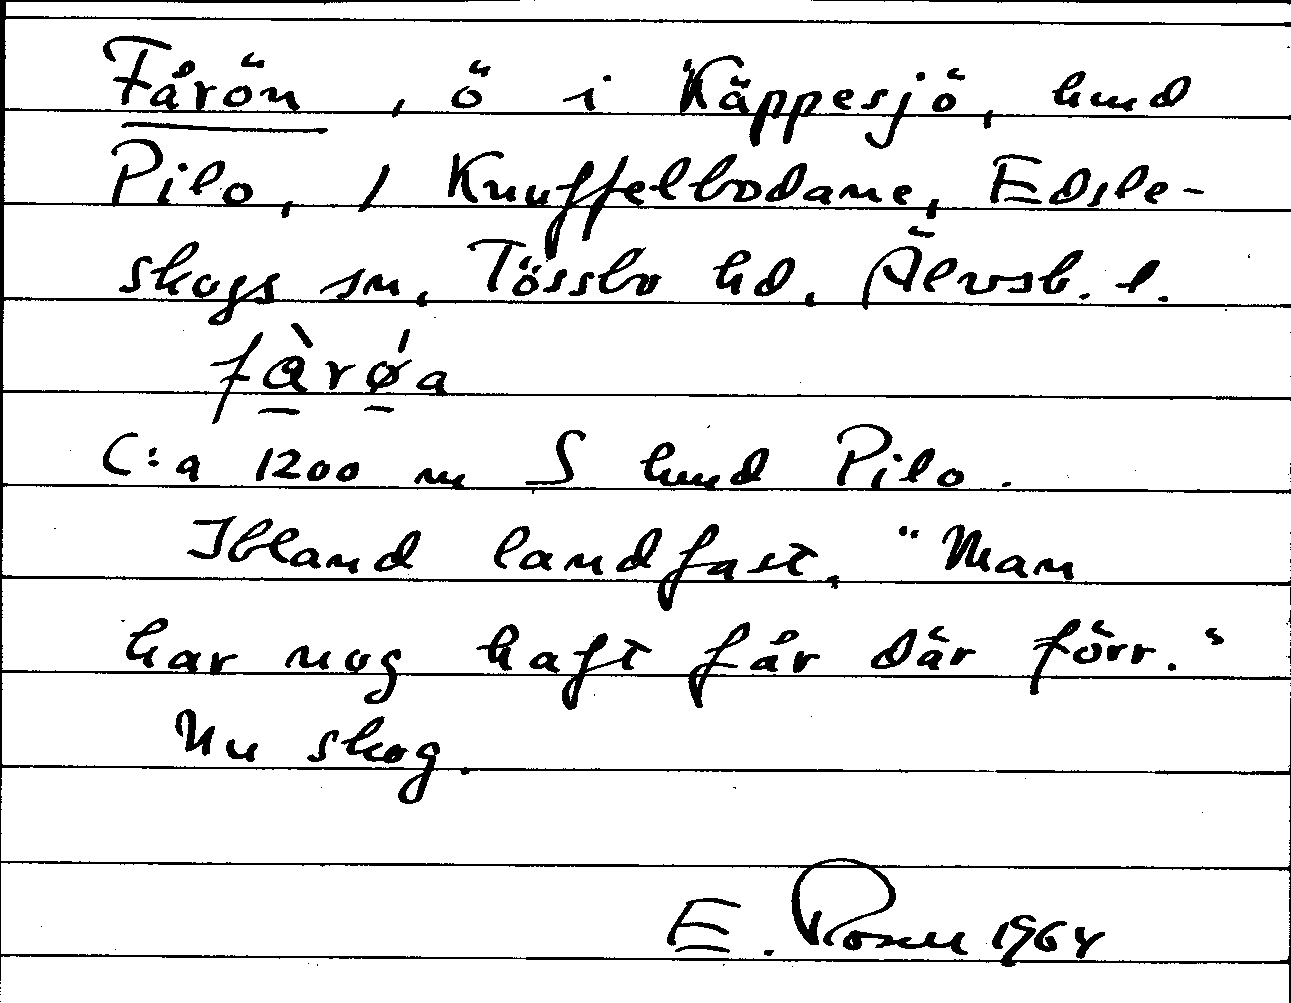 Fårön, ö i Käppesjö, hmd
Pilo, 1 Knuffelbodane, Edsle-
skogs sn, Tössbo hd, Älvsb. l.
fàrǿa
C:a 1200 m S hmd Pilo.
Ibland landfast. "Man
har nog haft får där förr."
Nu skog.
E. Rosell 1964